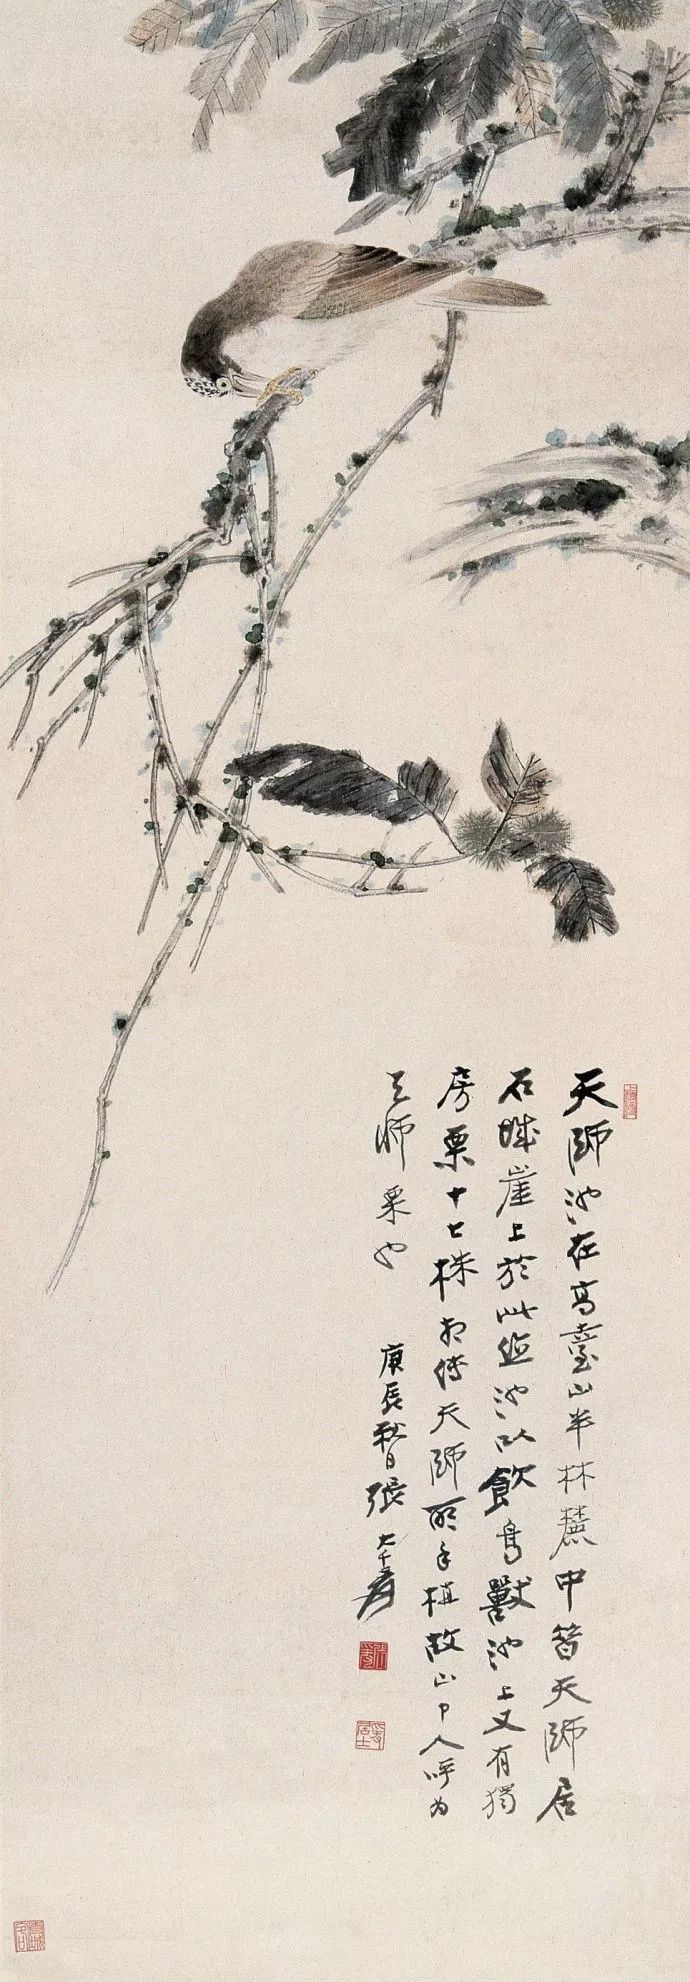 天師池在高臺山半林麓中昝天師居
石城崖上於此鑿池以飲鳥獸池上又有獨
房栗十七株相傳天師所手植故山中人呼为
天師栗也
庚辰秋日張大千爰